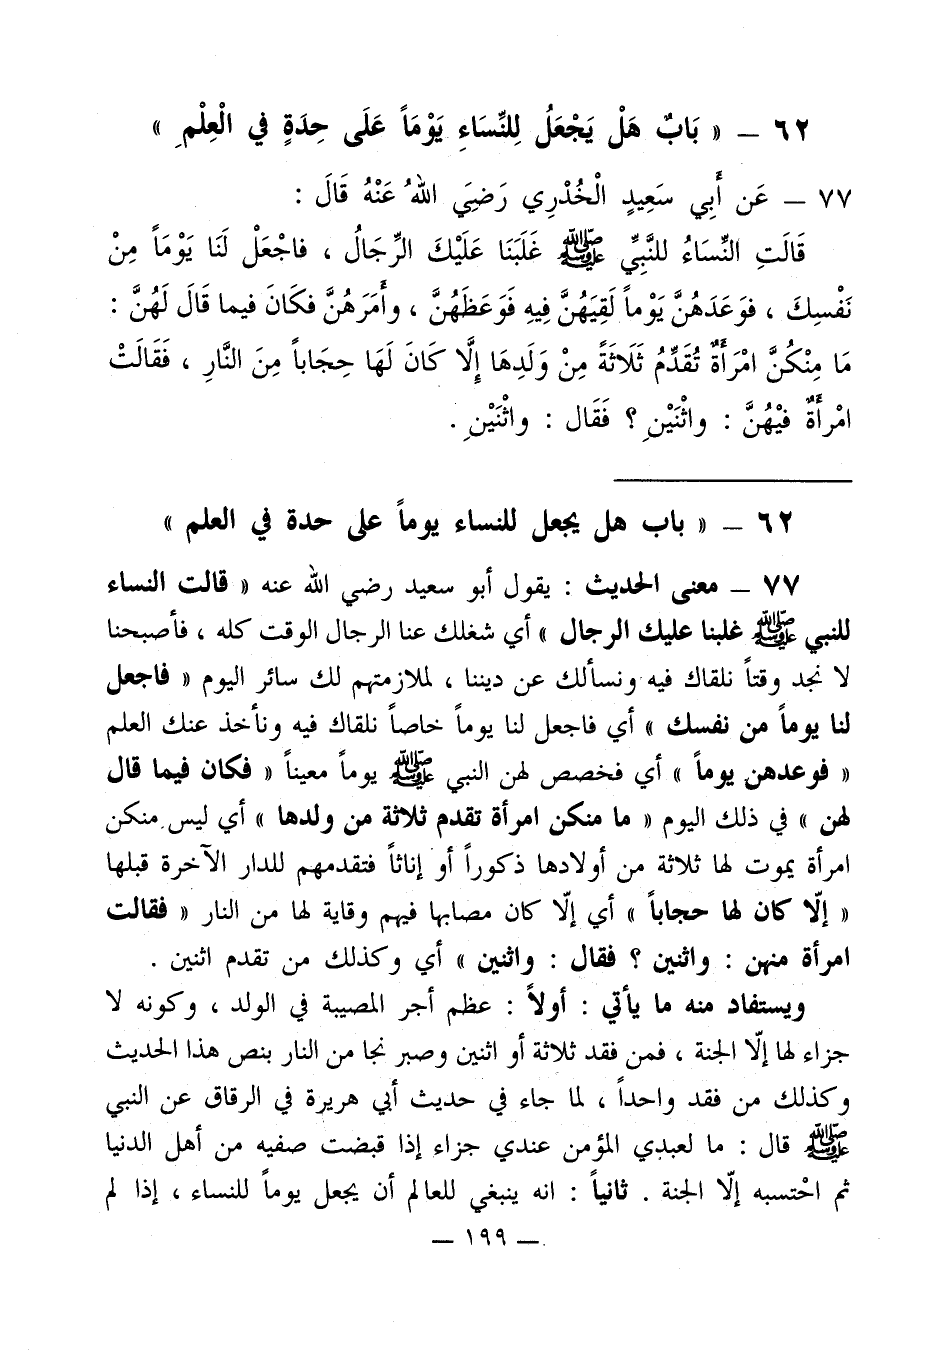 ٦٢ ــ « بَابٌ هَلْ يَجْعَلُ لِلنِّسَاءِ يَوْمَاً عَلَى حِدَةٍ فِي الْعِلْمِ »
٧٧ ــ عَن أَبِي سَعِيدٍ الْخُدْرِي رَضِيَ اللهُ عَنْهُ قَالَ :
قَالَتِ النِّسَاءُ للنَّبِيِّ ﷺ غَلَبَنَا عَلَيْكَ الرِّجَالُ ، فاجْعَلْ لَنَا يَوْمَاً مِنْ
نَفْسِكَ ، فوَعَدَهُنَّ يَوْماً لَقِيَهُنَّ فِيهِ فَوَعَظَهُنَّ ، وأَمَرَهُنَّ فكَانَ فيما قَالَ لَهُنَّ :
مَا مِنْكُنَّ امْرَأَةٌ تُقَدِّمُ ثَلَاثَةً مِنْ وَلَدِهَا إِلَّا كَانَ لَهَا حِجَاباً مِنَ النَّارِ ، فَقَالَتْ
امْرَأَةٌ فيْهُنَّ : واثْنَيْنِ ؟ فَقَال : واثْنَيْنِ .
٦٢ ــ « باب هل يجعل للنساء يوماً على حدة في العلم »
٧٧ ــ معنى الحديث : يقول أبو سعيد رضي الله عنه « قالت النساء
للنبي ﷺ غلبنا عليك الرجال » أي شغلك عنا الرجال الوقت كله ، فأصبحنا
لا نجد وقتاً نلقاك فيه ونسألك عن ديننا ، لملازمتهم لك سائر اليوم « فاجعل
لنا يوماً من نفسك » أي فاجعل لنا يوماً خاصاً نلقاك فيه ونأخذ عنك العلم
« فوعدهن يوماً » أي فخصص لهن النبي ﷺ يوماً معيناً « فكان فيما قال
لهن » في ذلك اليوم « ما منكن امرأة تقدم ثلاثة من ولدها » أي ليس منكن
امرأة يموت لها ثلاثة من أولادها ذكوراً أو إناثاً فتقدمهم للدار الآخرة قبلها
« إلّا كان لها حجاباً » أي إلّا كان مصابها فيهم وقاية لها من النار « فقالت
امرأة منهن : واثنين ؟ فقال : واثنين » أي وكذلك من تقدم اثنين .
ويستفاد منه ما يأتي : أولاً : عظم أجر المصيبة في الولد ، وكونه لا
جزاء لها إلّا الجنة ، فمن فقد ثلاثة أو اثنين وصبر نجا من النار بنص هذا الحديث
وكذلك من فقد واحداً ، لما جاء في حديث أبي هريرة في الرقاق عن النبي
ﷺ قال : ما لعبدي المؤمن عندي جزاء إذا قبضت صفيه من أهل الدنيا
ثم احْتسبه إلّا الجنة . ثانياً : انه ينبغي للعالم أن يجعل يوماً للنساء ، إذا لم
ــ ١٩٩ ــ